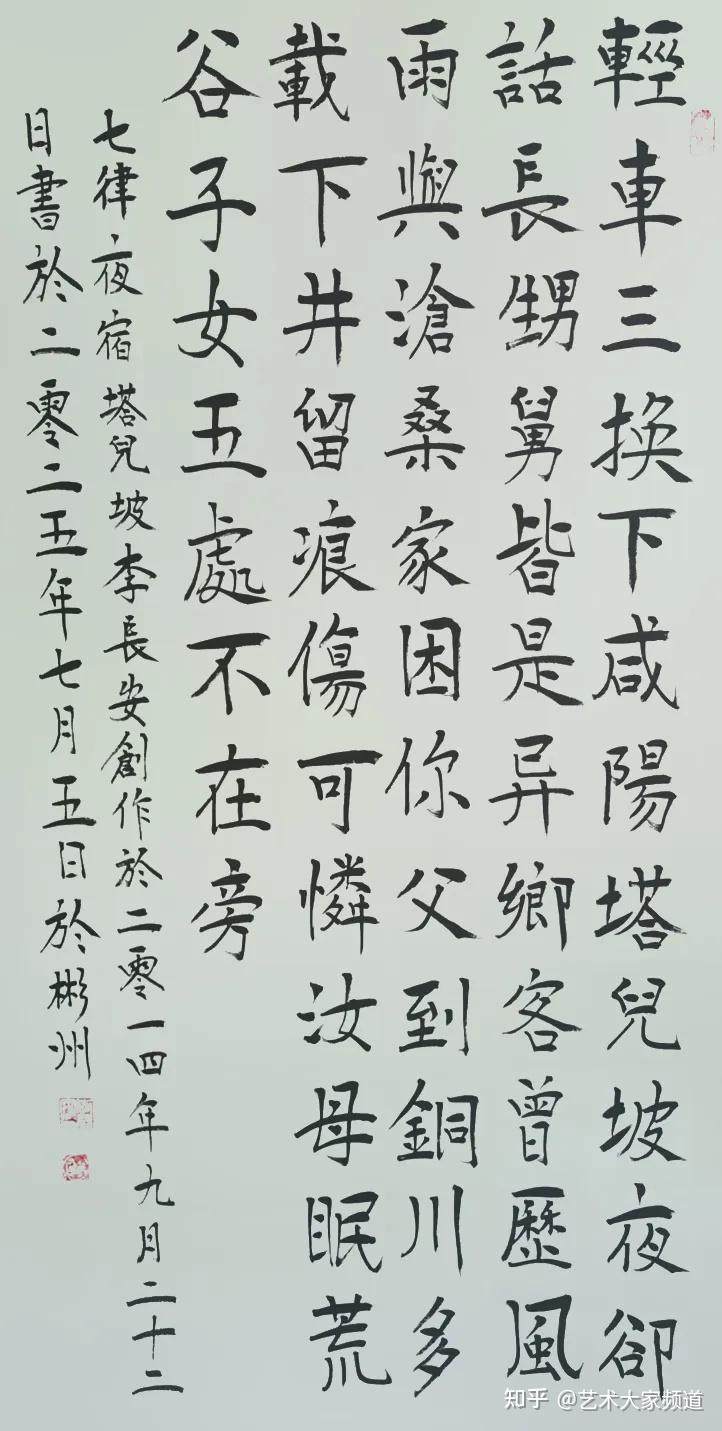 輕車三換下咸陽塔兒坡夜卻
話長甥舅皆是异鄉客曾歷風
雨與滄桑家困你父到銅川多
載下井留痕傷可憐汝母眠荒
谷子女五處不在旁
七律夜宿塔兒坡李長安創作於二零一四年九月二十二
日書於二零二五年七月五日於彬州
知乎 @艺术大家频道